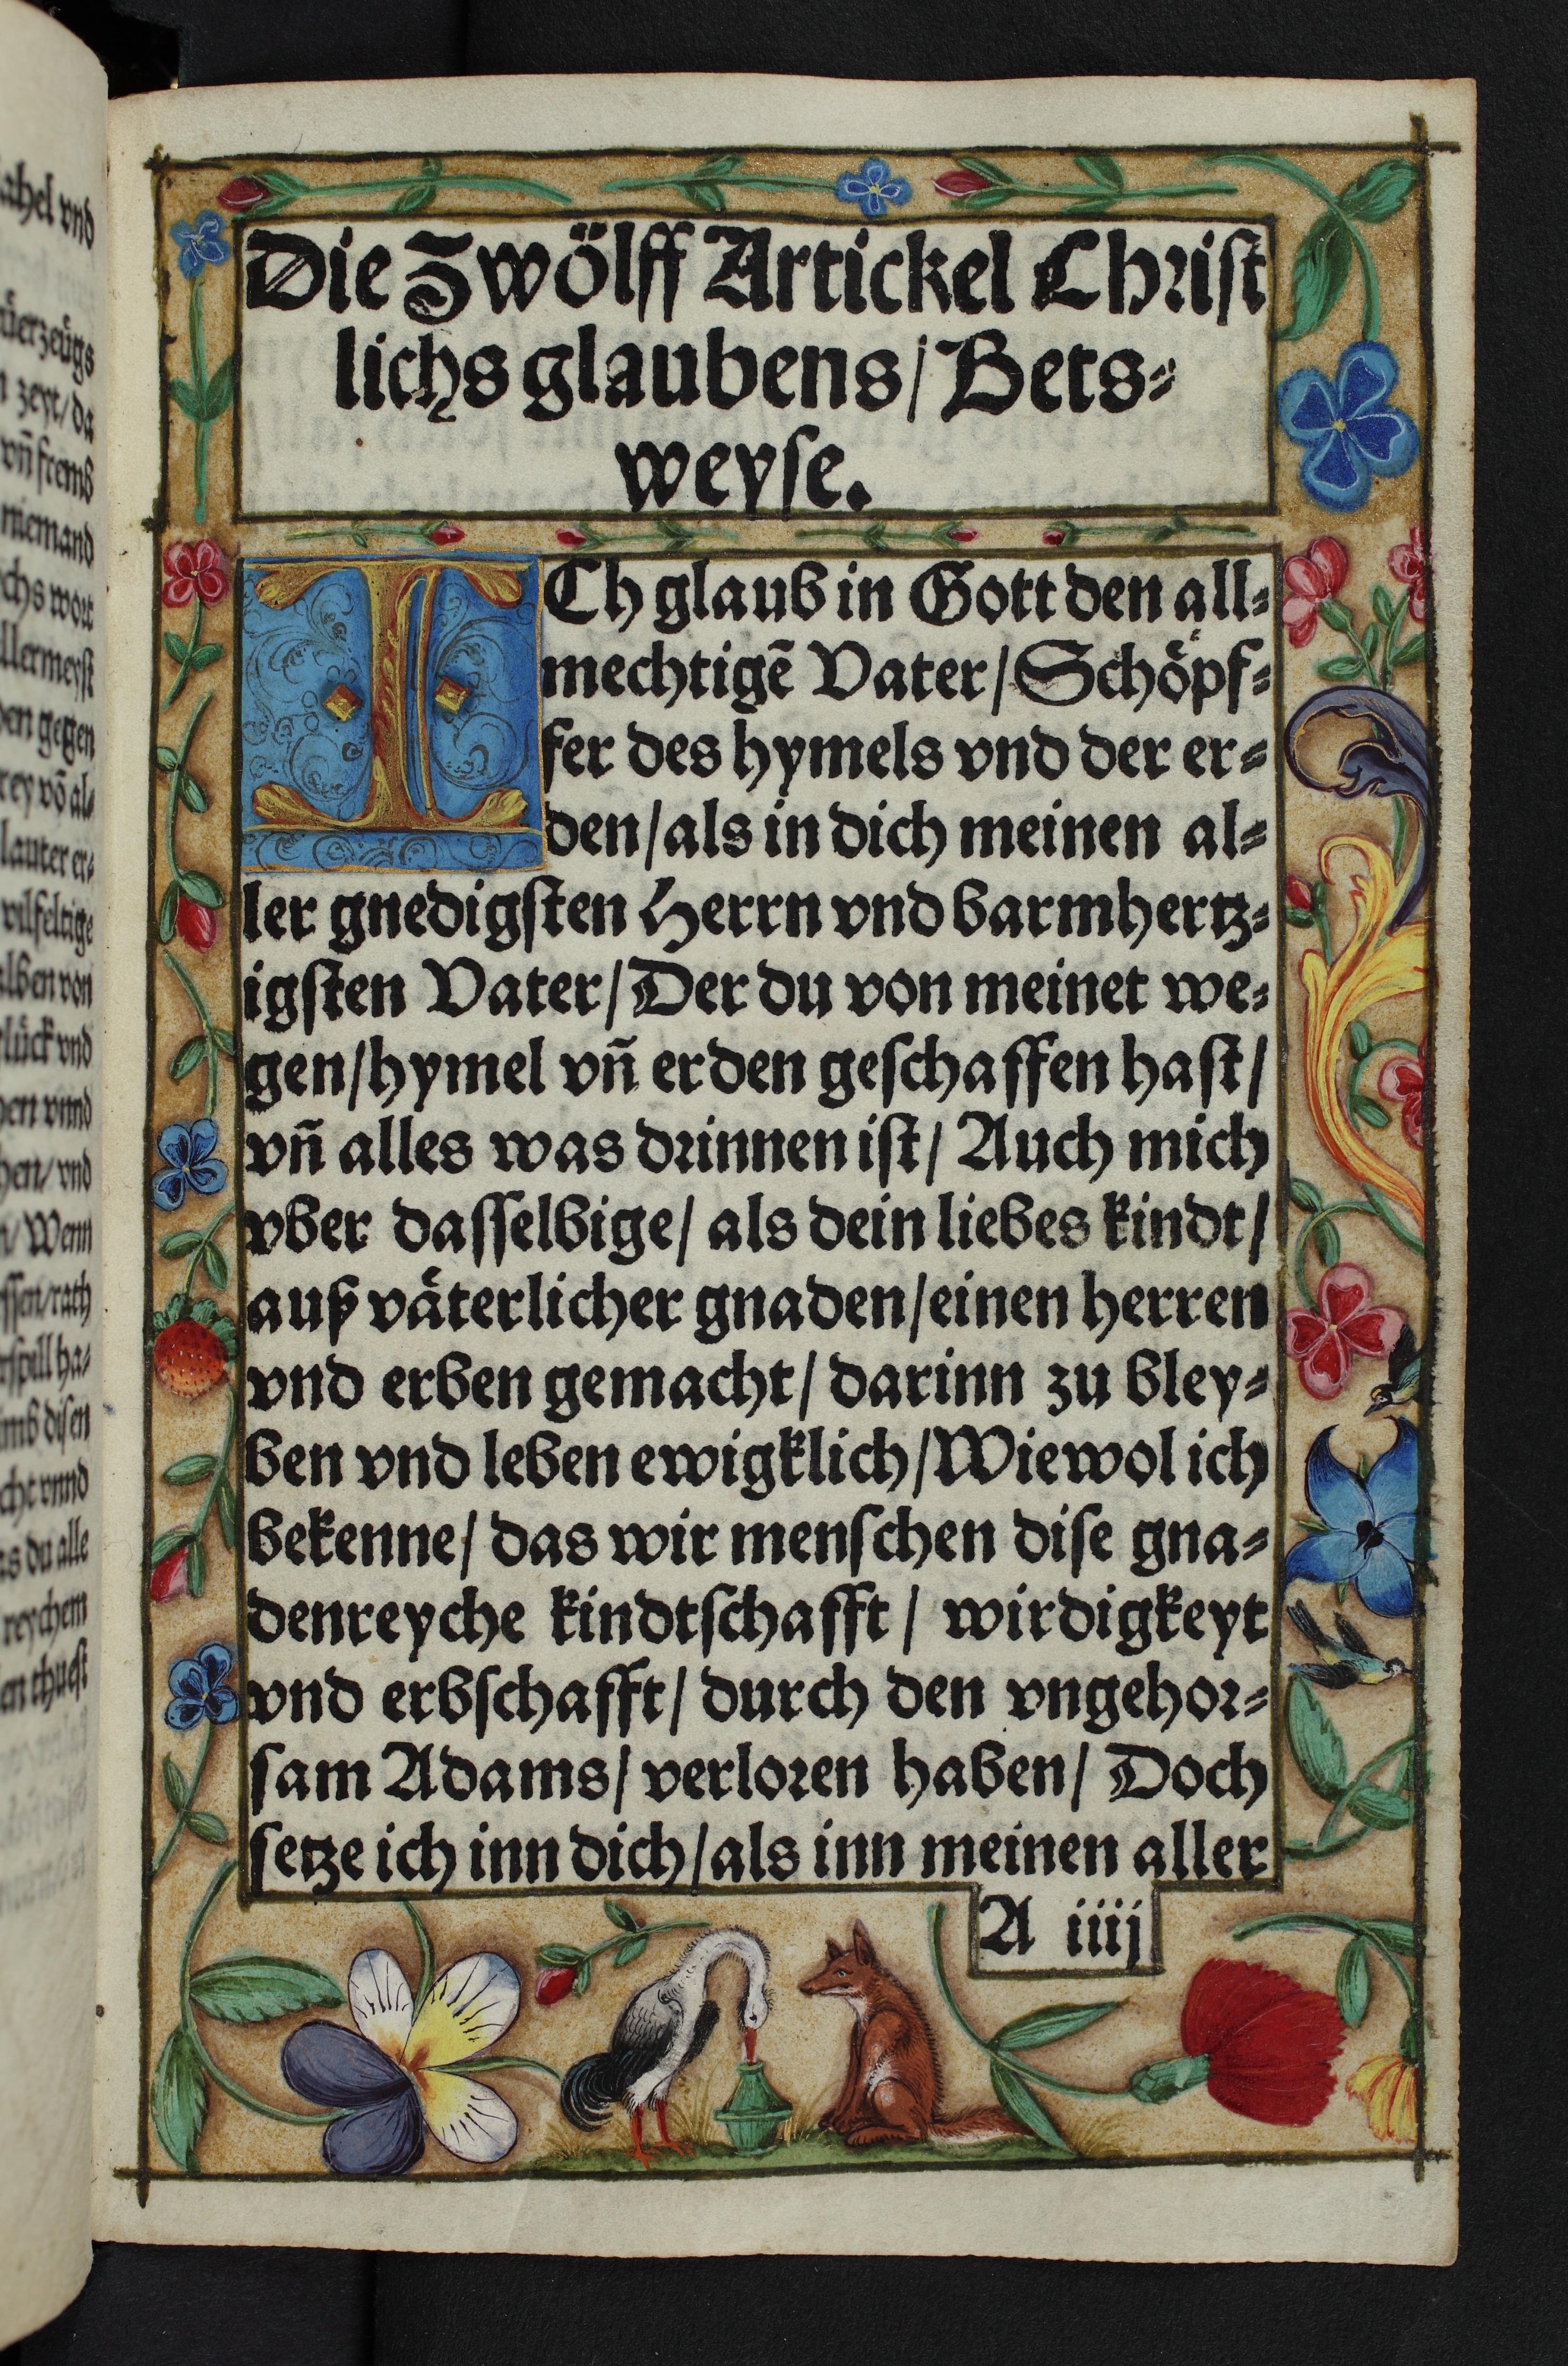 Die Zwölff Artickel Christ
lichs glaubens/ Bets⸗
weyse.
ICh glaub in Gott den all⸗
mechtigẽ Vater/ Schöpf⸗
fer des hymels vnd der er⸗
den/ als in dich meinen al⸗
ler gnedigsten Herrn vnd barmhertz⸗
igsten Vater/ Der du von meinet we⸗
gen/ hymel vñ erden geschaffen hast/
vñ alles was drinnen ist/ Auch mich
vber dasselbige/ als dein liebes kindt/
auß väterlicher gnaden/ einen herren
vnd erben gemacht/ darinn zu bley⸗
ben vnd leben ewigklich/ Wiewol ich
bekenne/ das wir menschen dise gna⸗
denreyche kindtschafft/ wirdigkeyt
vnd erbschafft/ durch den vngehor⸗
sam Adams/ verloren haben/ Doch
setze ich inn dich/ als inn meinen aller
A iiij